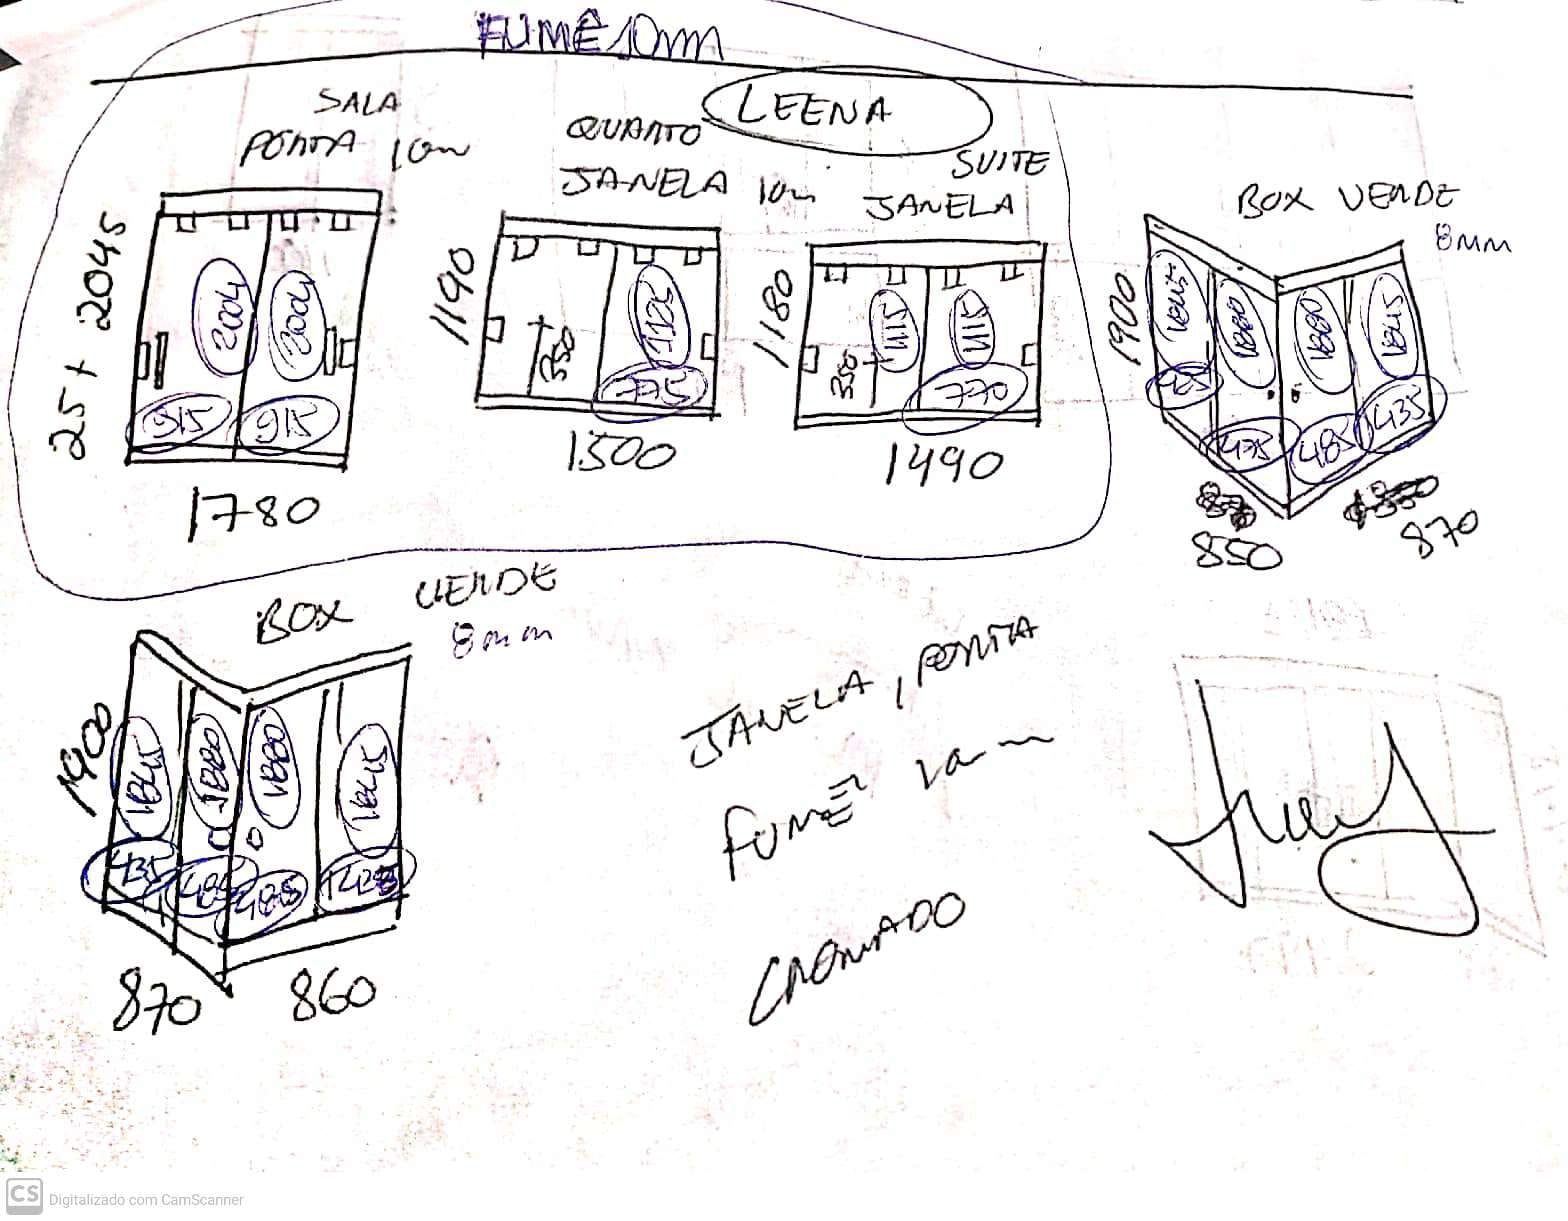 FUMÊ 10mm
LEENA
SALA
PORTA 10m
25 + 2045
2004
2004
915
915
1780
QUARTO
JANELA 10m
1190
350
1125
775
1500
SUITE
JANELA
1180
350
1115
1115
770
1490
BOX VERDE
8mm
1900
1845
1880
1880
1845
425
475
485
435
850
870
BOX VERDE
8mm
1900
1845
1880
1880
1845
435
485
485
870
860
JANELA, PORTA
FUMÊ 10mm
CROMADO
CS Digitalizado com CamScanner